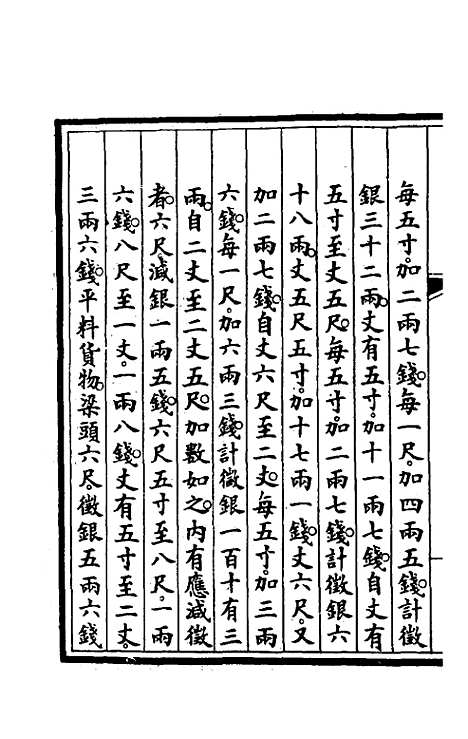 每五寸。加二兩七錢。每一尺。加四兩五錢。計徵
銀三十二兩。丈有五寸。加十一兩七錢。自丈有
五寸至丈五尺。每五寸。加二兩七錢。計徵銀六
十八兩。丈五尺五寸。加十七兩一錢。丈六尺。又
加二兩七錢。自丈六尺至二丈。每五寸。加三兩
六錢。每一尺。加六兩三錢。計徵銀一百十有三
兩。自二丈至二丈五尺。加數如之。內有應減徵
者。六尺減銀一兩五錢。六尺五寸至八尺。一兩
六錢。八尺至一丈。一兩八錢。丈有五寸至二丈。
三兩六錢。平料貨物。梁頭六尺。徵銀五兩六錢